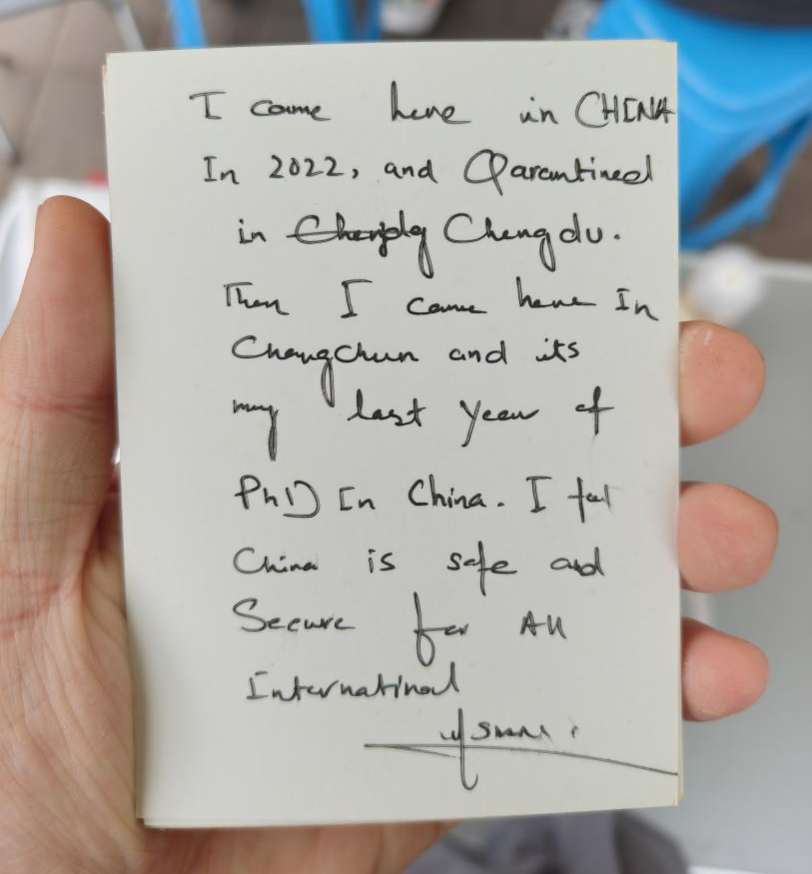 I came here in CHINA
In 2022, and Qarantined
in Chengdu.
Then I came here In
Changchun and its
my last year of
PhD In China. I feel
China is safe and
Secure for All
Internatinal